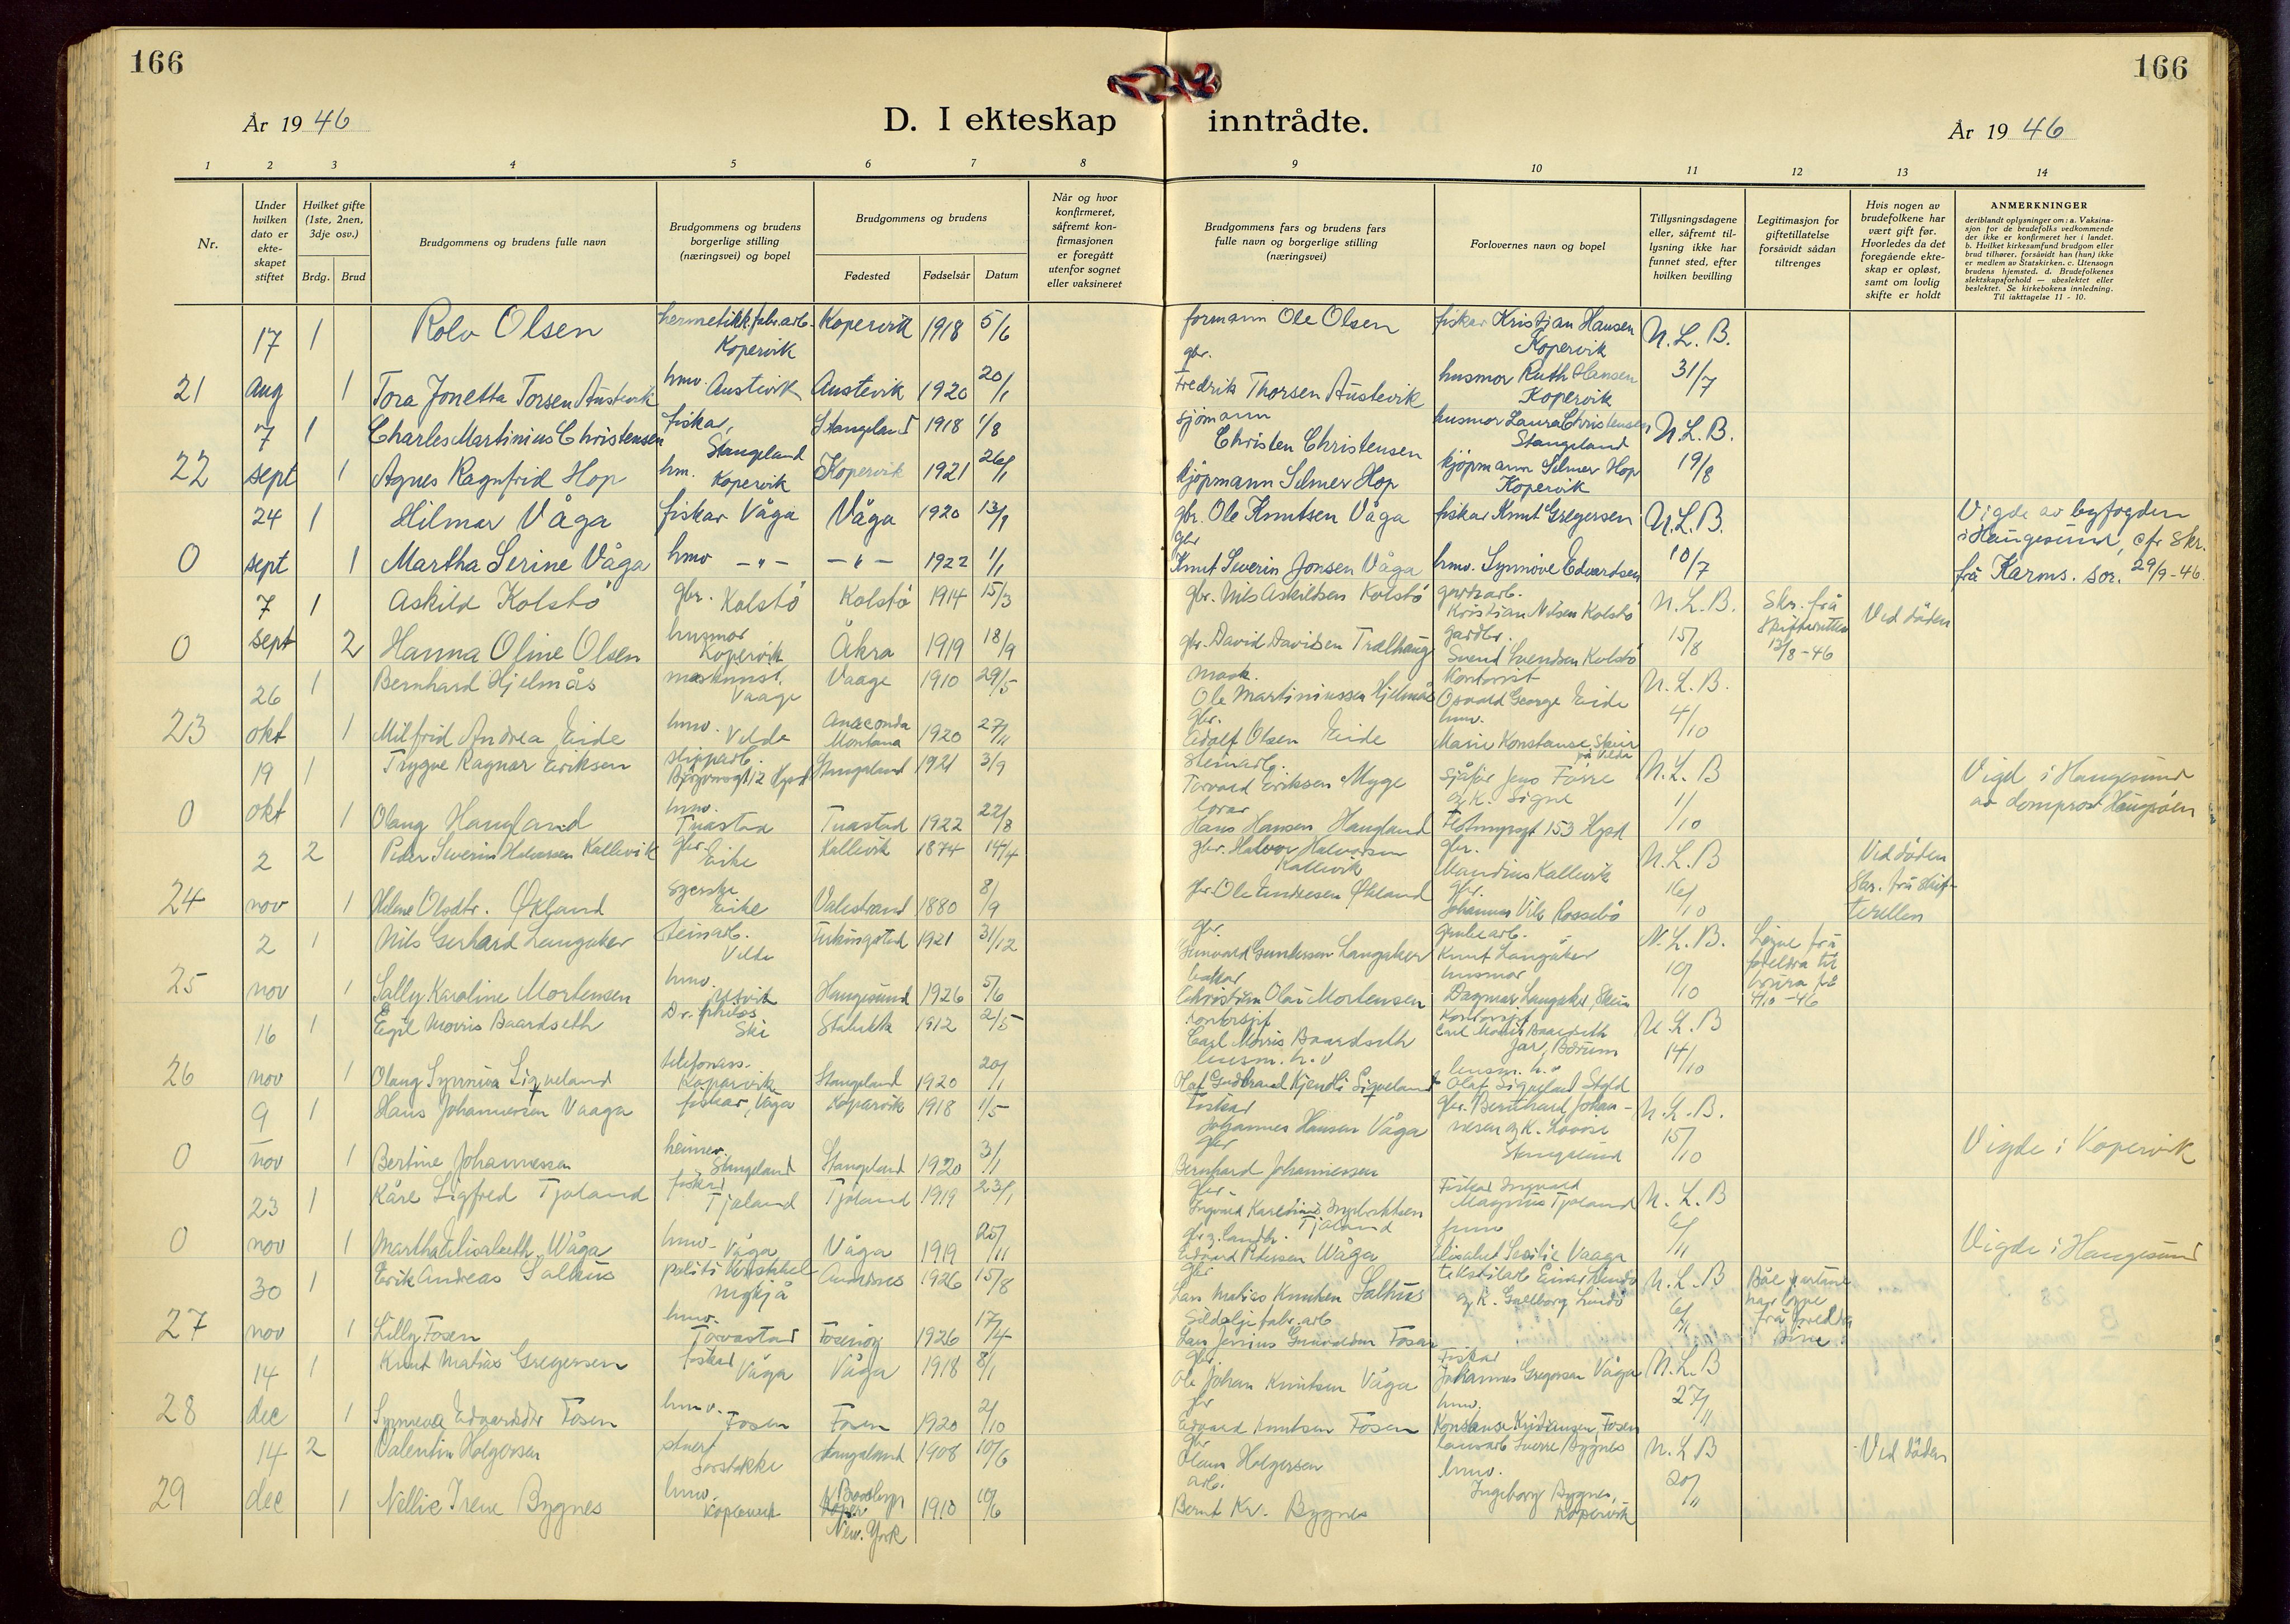 166
166
År 1946
D. I ekteskap inntrådte.
År 1946
1 2 3 4 5 6 7 8 9 10 11 12 13 14
Nr.
Under hvilken dato er ekte-skapet stiftet
Hvilket gifte (1ste, 2nen, 3dje osv.)
Brdg. Brud
Brudgommens og brudens fulle navn
Brudgommens og brudens borgerlige stilling (næringsvei) og bopel
Brudgommens og brudens
Fødested Fødselsår Datum
Når og hvor konfirmeret, såfremt kon-firmasjonen er foregått utenfor sognet eller vaksineret
Brudgommens fars og brudens fars fulle navn og borgerlige stilling (næringsvei)
Forlovernes navn og bopel
Tillysningsdagene eller, såfremt til-lysning ikke har funnet sted, efter hvilken bevilling
Legitimasjon for giftetillatelse forsåvidt sådan tiltrenges
Hvis nogen av brudefolkene har vært gift før. Hvorledes da det foregående ekte-skap er opløst, samt om lovlig skifte er holdt
ANMERKNINGER
deriblandt oplysninger om: a. Vaksina-sjon for de brudefolks vedkommende der ikke er konfirmeret her i landet. b. Hvilket kirkesamfund brudgom eller brud tilhører, forsåvidt han (hun) ikke er medlem av Statskirken. c. Utensogn brudens hjemsted. d. Brudefolkenes slektskapsforhold — ubeslektet eller beslektet. Se kirkebokens innledning. Til iakttagelse 11 - 10.
17 1 Rolv Olsen hermetikk.fabr.arb. Kopervik Kopervik 1918 5/6 formann Ole Olsen fiskar Kristian Hansen Kopervik N.L.B.
21 aug 1 Tora Jonetta Torsen Austevik hmv. Austevik Austevik 1920 20/1 gbr. Fredrik Thorsen Austevik husmor Ruth Hansen Kopervik 31/7
7 1 Charles Martinius Christensen fiskar, Stangeland Stangeland 1918 1/8 sjømann Christen Christensen husmor Laura Christensen Stangeland N.L.B.
22 sept 1 Agnes Ragnfrid Hop hm. Kopervik Kopervik 1921 26/1 kjøpmann Selmer Hop kjøpmann Selmer Hop Kopervik 19/8
24 1 Hilmar Våga fiskar Våga Våga 1920 13/9 gbr. Ole Knutsen Våga fiskar Knut Gregersen N.L.B. Vigde av byfogden
0 sept 1 Martha Serine Våga hmv -"- -"- 1922 1/1 gbr Knut Severin Jonsen Våga hmv. Synnøve Edvardsen 10/7 i Haugesund, cfr skr. frå Karms. sor. 29/9-46.
7 1 Askild Kolstø gbr. Kolstø Kolstø 1914 15/3 gbr. Nils Askildsen Kolstø gardsarb. Kristian Nilsen Kolstø N.L.B. Skr. frå Skifteretten 13/8-46 Ved døden
0 sept 2 Hanna Oline Olsen husmor Kopervik Åkra 1919 18/9 gbr. David Davidsen Trælhaug gardbr. Svend Svendsen Kolstø 15/8
26 1 Bernhard Hjelmås maskinist. Vaage Vaage 1910 29/5 Ole Martiniussen Hjelmås Kontorist Osvald George Eide N.L.B.
23 okt 1 Milfrid Andrea Eide hmv. Velde Anaconda Montana 1920 27/11 gbr. Adolf Olsen Eide hmv. Marie Konstanse 4/10
19 1 Trygve Ragnar Eriksen slipparb. Stangeland 1921 3/9 steinarb. Torvald Eriksen Myge sjåfør Jens Førre N.L.B Vigd i Haugesund
0 okt 1 Olaug Haugland hmv. Tuastad Tuastad 1922 22/8 Hans Hansen Haugland og k. Signe 153 Hgsd 1/10 av domprost
2 2 Peder Severin Halvorsen Kallevik gbr. Eike Kallevik 1874 14/4 gbr. Halvor Halvorsen Kallevik gbr. Mandius Kallevik N.L.B Ved døden
24 nov 1 Helene Olsdtr. Økland Eike Valestrand 1880 8/9 gbr. Ole Endresen Økland gbr. Johannes Vik Rossebø 16/10 Skr. frå skifteretten
2 1 Nils Gerhard Langaker steinarb. Velde 1921 31/12 gbr. Gunvald Gundersen Langaker Knut Langåker N.L.B. Løyve frå foreldra til brura frå 4/10-46
25 nov 1 Sally Karoline Mortensen hmv. Haugesund 1926 5/6 Christian Olai Mortensen husmor Dagmar Langaker 10/10
16 1 Egil Morris Baardseth Dr. philos Ski 1912 2/5 kontorsjef Carl Morris Baardseth kontorsjef Carl Morris Baardseth Jar, Bærum N.L.B
26 nov 1 Olaug Synnøva Sigveland telefonass. Kopervik Stangeland 1920 20/1 lensm. h.v Olaf Gudbrand Kjendli Sigveland lensm. h.v Olaf Sigveland 14/10
9 1 Hans Johannessen Vaaga fiskar, Våga Kopervik 1918 1/5 Fiskar Johannes Hansen Våga gbr. Bernhard Johannesen og k. N.L.B.
0 nov 1 Bertine Johannessen Stangeland Stangeland 1920 3/1 gbr Bernhard Johannessen Stangeland 15/10 Vigde i Kopervik
23 1 Kåre Sigfred Tjøland fiskar Tjøland Tjøland 1919 23/1 gbr. Ingvald Tjøland Fiskar Ingvald Magnus Tjøland N.L.B
0 nov 1 Martha Elisabeth Våga hmv. Våga Våga 1919 25/11 Edvard Petersen Våga hmv Elisabet Vaaga 6/11 Vigde i Haugesund
30 1 Erik Andreas Salhus 1926 15/8 gbr Lars Matias Knutsen Salhus og k. N.L.B
27 nov 1 Lilly Fosen hmv. Torvastad Fosenøy 1926 17/4 Sildolje fabr.arb 6/11 frå foreldra sine
14 1 Knut Matias Gregersen fiskar Våga Våga 1918 8/1 gbr. Ole Johan Knutsen Våga Fiskar Johannes Gregersen Våga N.L.B
28 dec 1 Synneva Edvardsdtr Fosen hmv. Fosen Fosen 1920 2/10 gbr Edvard Knutsen Fosen hmv. Konstanse Kristiansen, Fosen 27/11
14 2 Valentin Holgersen Stangeland 1908 10/6 gbr Olaus Holgersen Sverre Bygnes N.L.B Ved døden
29 dec 1 Nellie Irene Bygnes hmv. Kopervik New York 1910 10/6 arb. Bernt Kr. Bygnes hmv. Ingeborg Bygnes, Kopervik 20/11